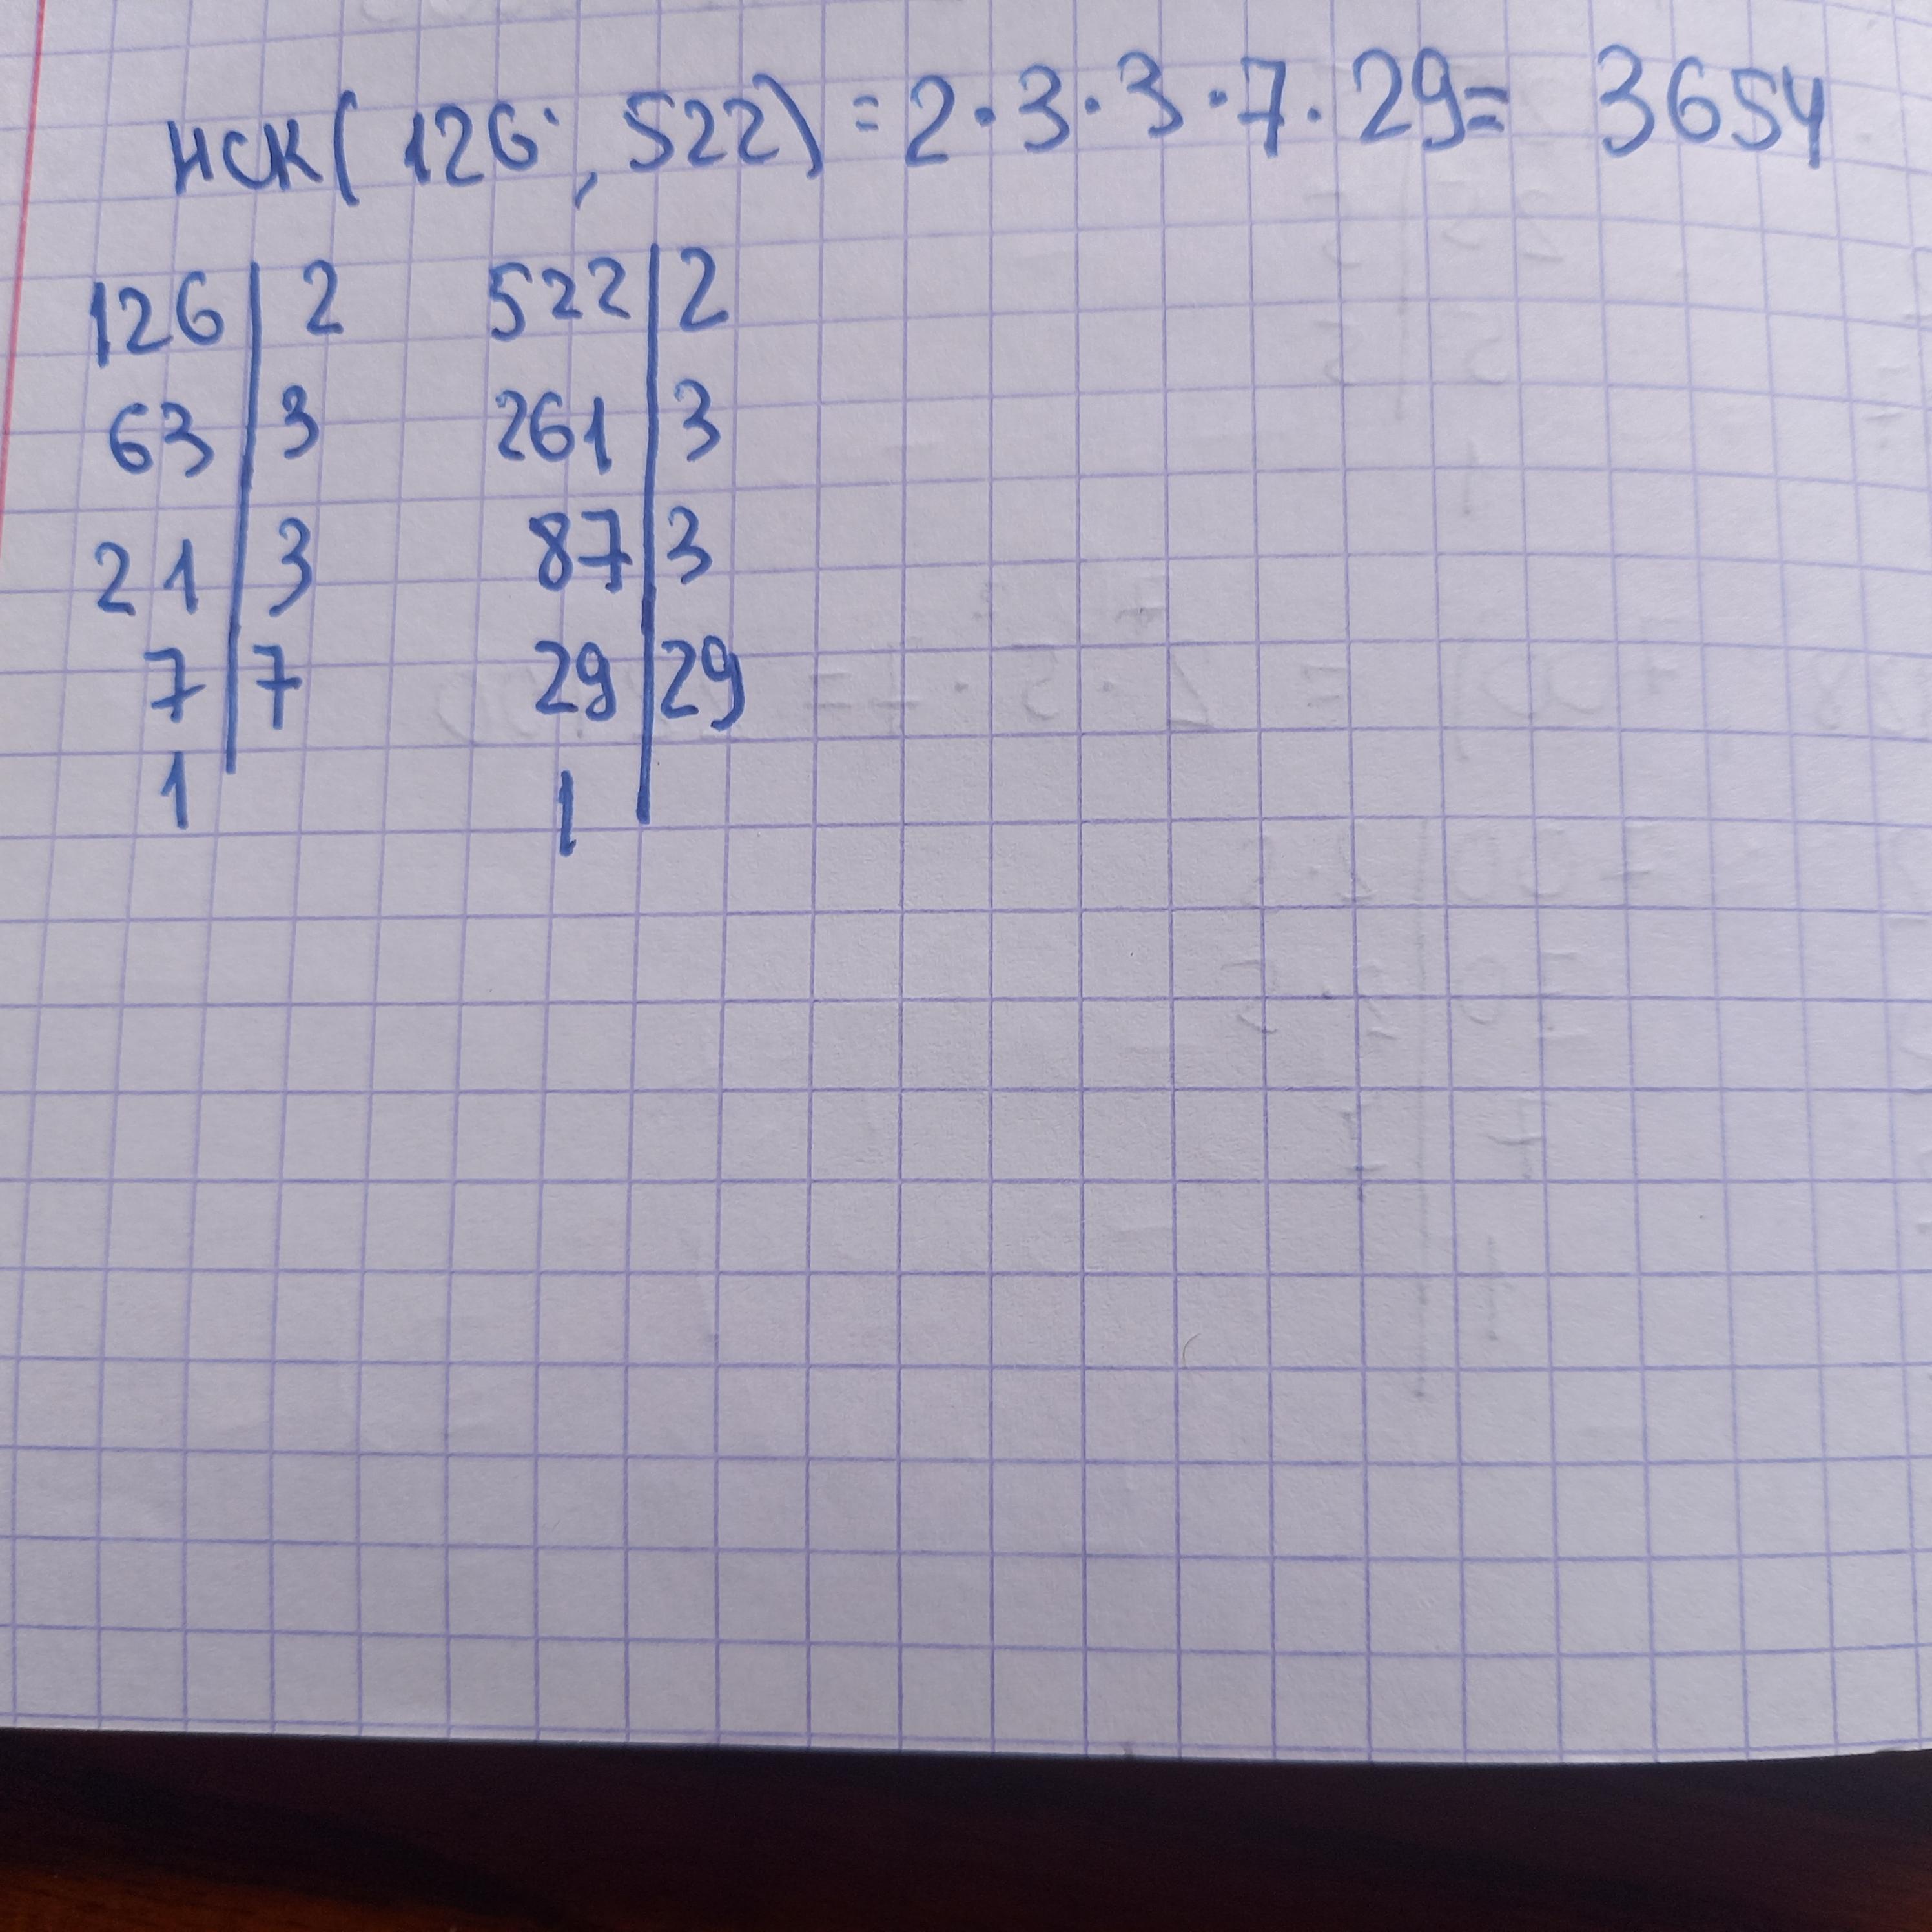 НСК(126, 522) = 2·3·3·7·29= 3654
126 | 2 522 | 2
63 | 3 261 | 3
21 | 3 87 | 3
7 | 7 29 | 29
1 1